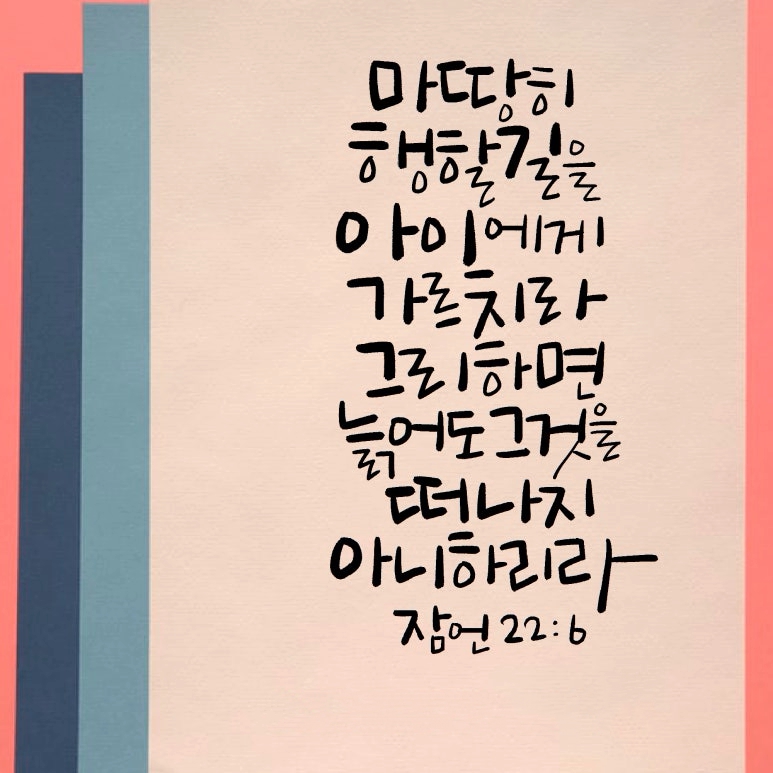 마땅히
행할길을
아이에게
가르치라
그리하면
늙어도그것을
떠나지
아니하리라
잠언 22:6